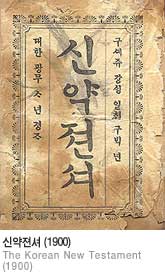 구셰쥬 강싱 일쳔 구빅 년
신약젼셔
대한 광무 ᄉ 년 경ᄌ
신약젼셔 (1900)
The Korean New Testament
(1900)